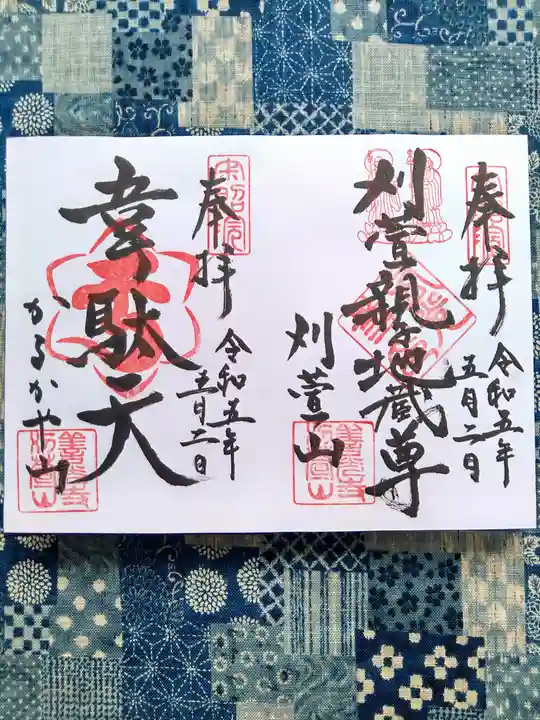 奉拝
令和五年
五月二日
刈萱親子地蔵尊
刈萱山
奉拝
令和五年
五月二日
韋駄天
かるかや山